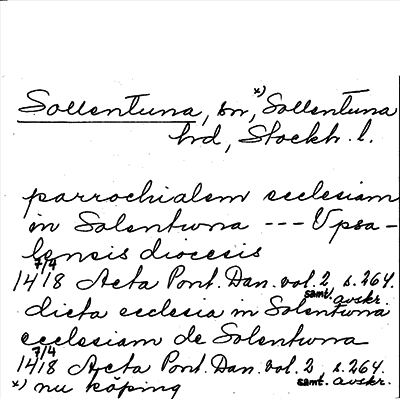 Sollentuna, sn, x) Sollentuna
hd, Stockh. l.
parrochialem ecclesiam
in Solentwna --- Upsa-
lensis diocesis
7/4 1418 Acta Pont. Dan. vol. 2, s. 264.
samt. avskr.
dicta ecclesia in Solentwna
ecclesiam de Solentwna
7/4 1418 Acta Pont. Dan. vol. 2, s. 264.
samt. avskr.
x) nu köping